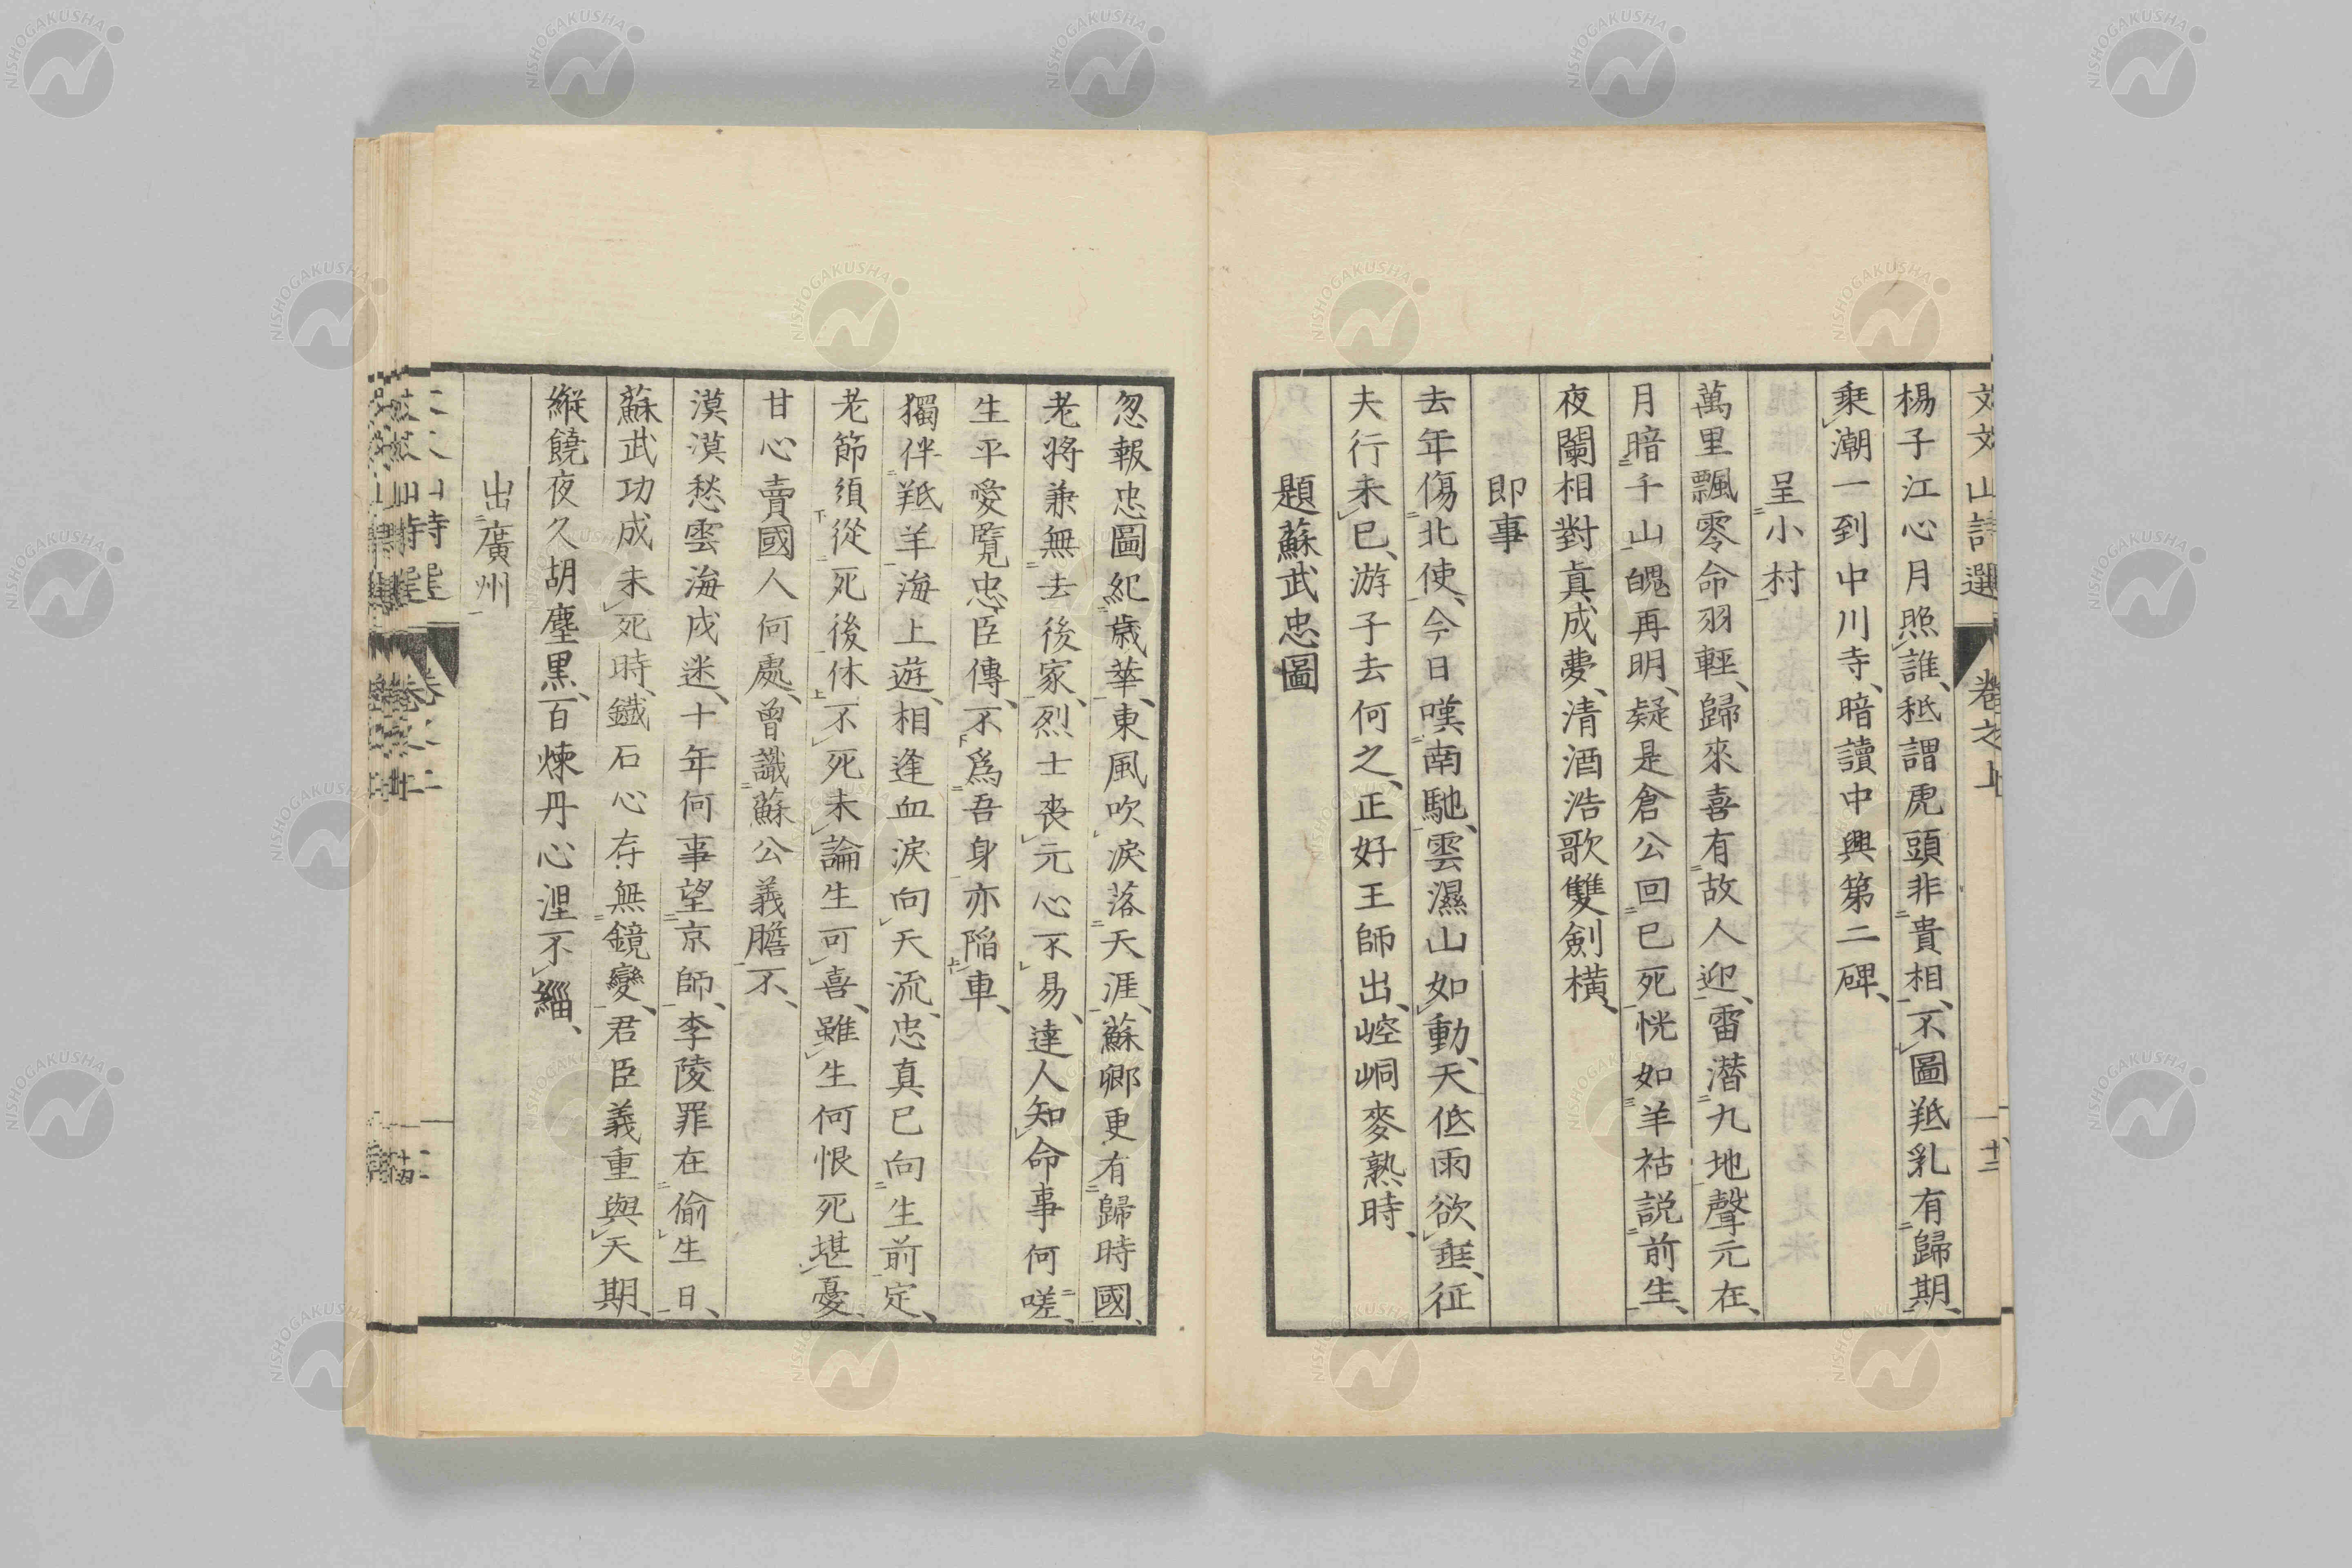 文文山詩選 卷之上 十二
楊子江心月照誰秪謂虎頭非貴相不圖羝乳有歸期
乗潮一到中川寺暗讀中興第二碑
呈小村
萬里飄零命羽輕歸來喜有故人迎雷潛九地聲元在
月暗千山魄再明疑是倉公回已死恍如羊祜説前生
夜闌相對眞成夢清酒浩歌雙劍橫
即事
去年傷北使今日嘆南馳雲濕山如動天低雨欲垂征
夫行未已游子去何之正好王師出崆峒麥熟時
題蘇武忠圖
忽報忠圖紀歳華東風吹涙落天涯蘇卿更有歸時國
老將兼無去後家烈士喪元心不易達人知命事何嗟
生平愛覽忠臣傳不爲吾身亦陷車
獨伴羝羊海上遊相逢血涙向天流忠真已向生前定
老節須從死後休不死未論生可喜雖生何恨死堪憂
甘心賣國人何處曾識蘇公義膽不
漠漠愁雲海戍迷十年何事望京師李陵罪在偷生日
蘇武功成未死時鐵石心存無鏡變君臣義重與天期
縱饒夜久胡塵黒百煉丹心涅不緇
出廣州
NISHOGAKUSHA